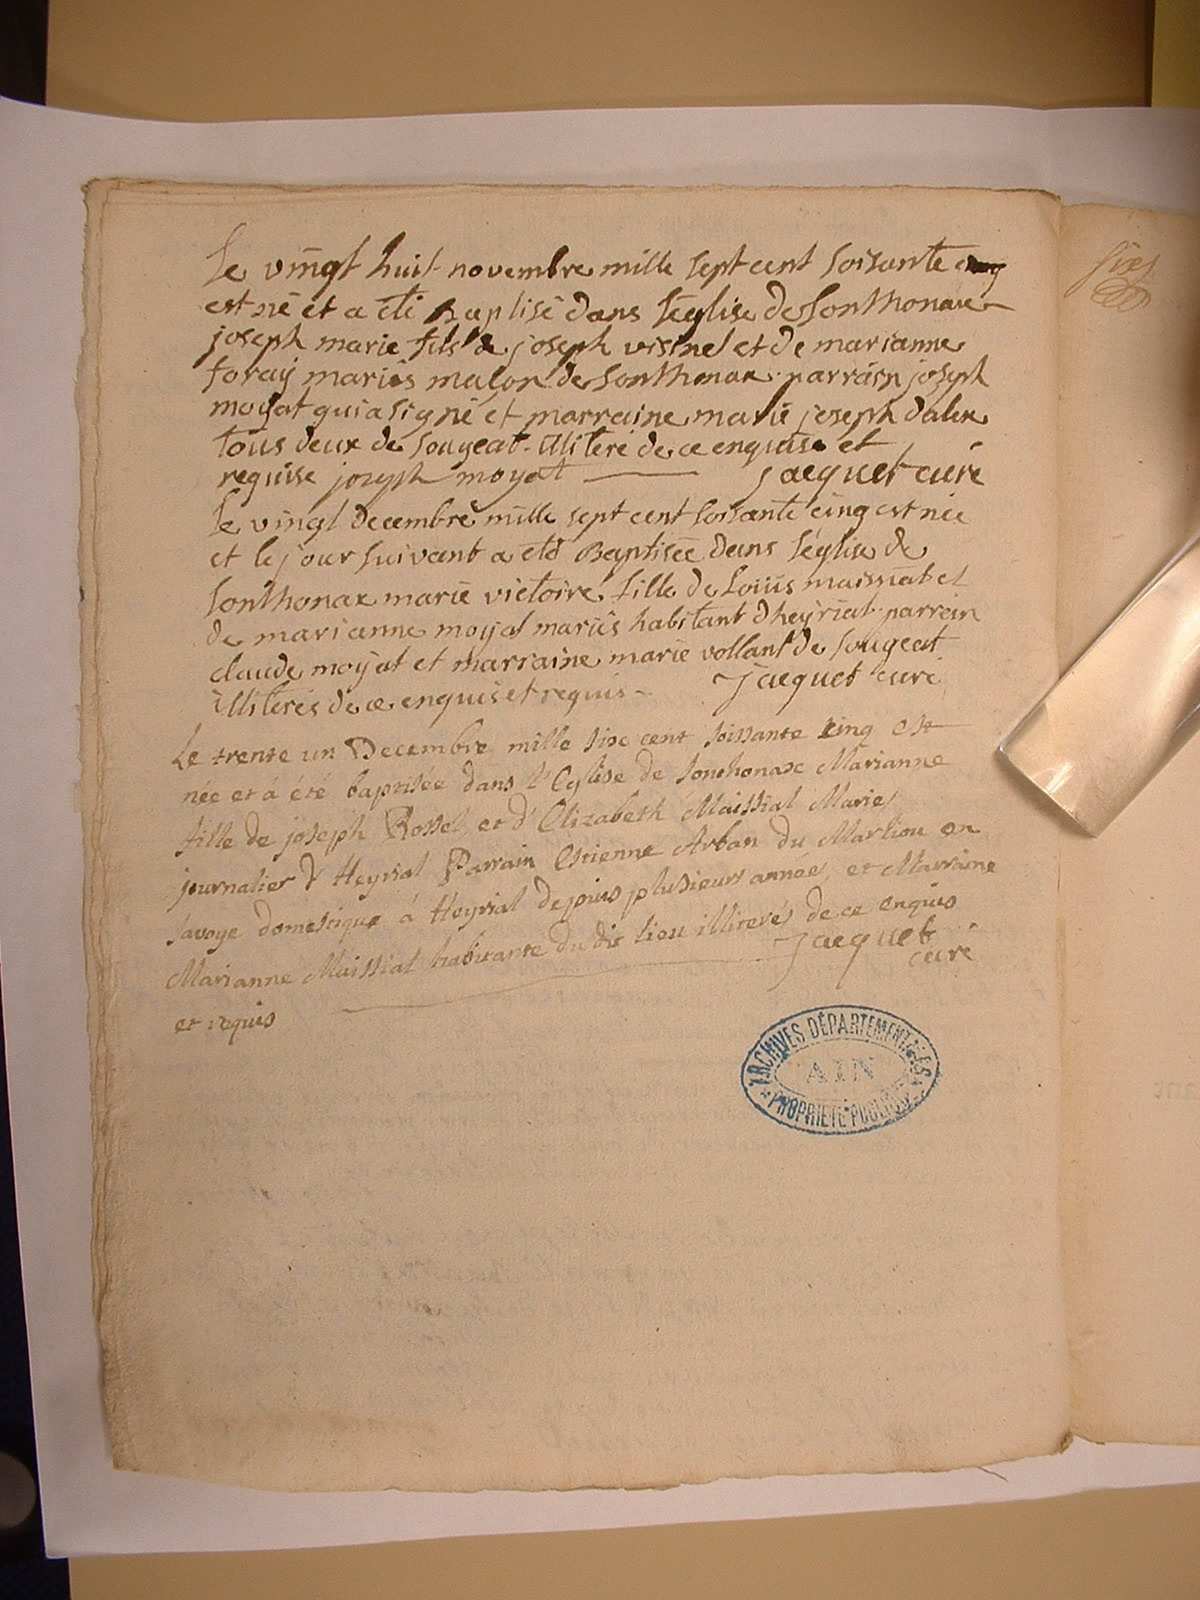 Le vingt huit novembre mille sept cent soisante cinq
est né et a été Baptisé dans l'église de Sonthonax
joseph marie fils de joseph visinel et de marianne
foray mariés maçon de Sonthonax. parrain joseph
moyat qui a signé et marraine marie joseph dalex
tous deux de Sougeat. illiteré de ce enquise et
requise joseph moyat jacquet curé
Le vingt decembre mille sept cent soisante cinq est née
et le jour suivant a été Baptisée dans l'église de
Sonthonax marie victoire fille de Loüis maissiat et
de marianne moyat mariés habitant d'heyriat. parrein
claude moyat et marraine marie vollant de Sougeat
illiterés de ce enquis et requis jacquet curé
Le trente un Decembre mille sixe cent soissante cinq est
née et á été baptisée dans l'Eglise de Sonthonaxe Marianne
fille de joseph Rossel et d'Elizabeth Maissiat Mariés
journalier d'Heyriat Parrain Estienne Arban du Marliou en
Savoye domestique á Heyriat depuis plusieurs année, et Marraine
Marianne Maissiat habitante du dit lieu illiterés de ce enquis
et requis jacquet
curé
ARCHIVES DÉPARTEMENTALES
AIN
PROPRIÉTÉ PUBLIQUE